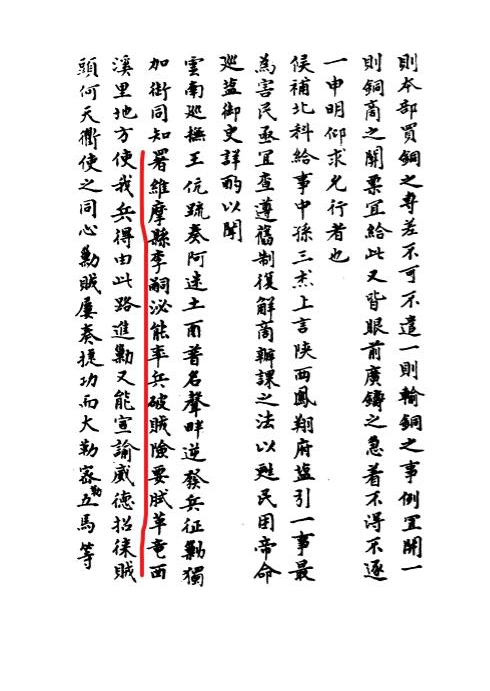 則本部買銅之専差不可不遣一則輸銅之事例宜開一
則銅商之開票宜給此又皆眼前廣鑄之急着不得不逐
一申明仰求允行者也
候補北科給事中孫三杰上言陕西鳳翔府塩引一事最
為害民亟宜查遵舊制復解商辦課之法以甦民困帝命
巡盐御史詳酌以聞
雲南巡撫王伉疏奏阿迷土酋普名聲畔逆發兵征勦獨
加銜同知署維摩縣李嗣泌能率兵破賊險要賊革竜西
溪里地方使我兵得由此路進勦又能宣諭威德招徕賊
頭何天衢使之同心勦賊屢奏捷功而大勒密勒五馬等